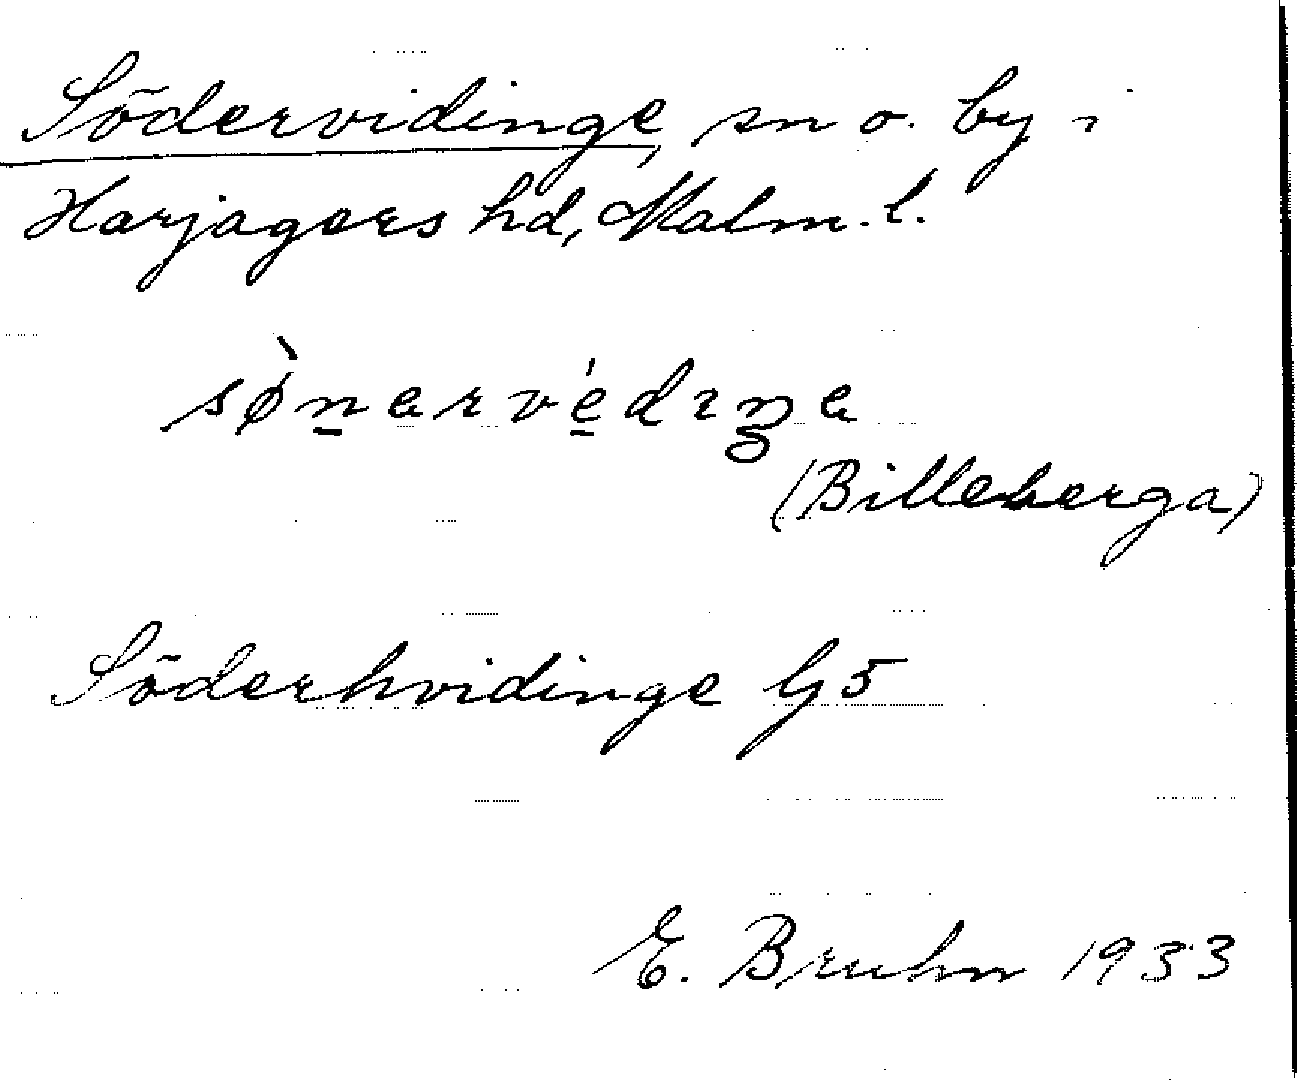 Södervidinge, sn o. by i
Harjagers hd, Malm. l.
sø̀n̲ərvé̲dıŋə
(Billeberga)
Söderhvidinge G5
E. Bruhn 1933